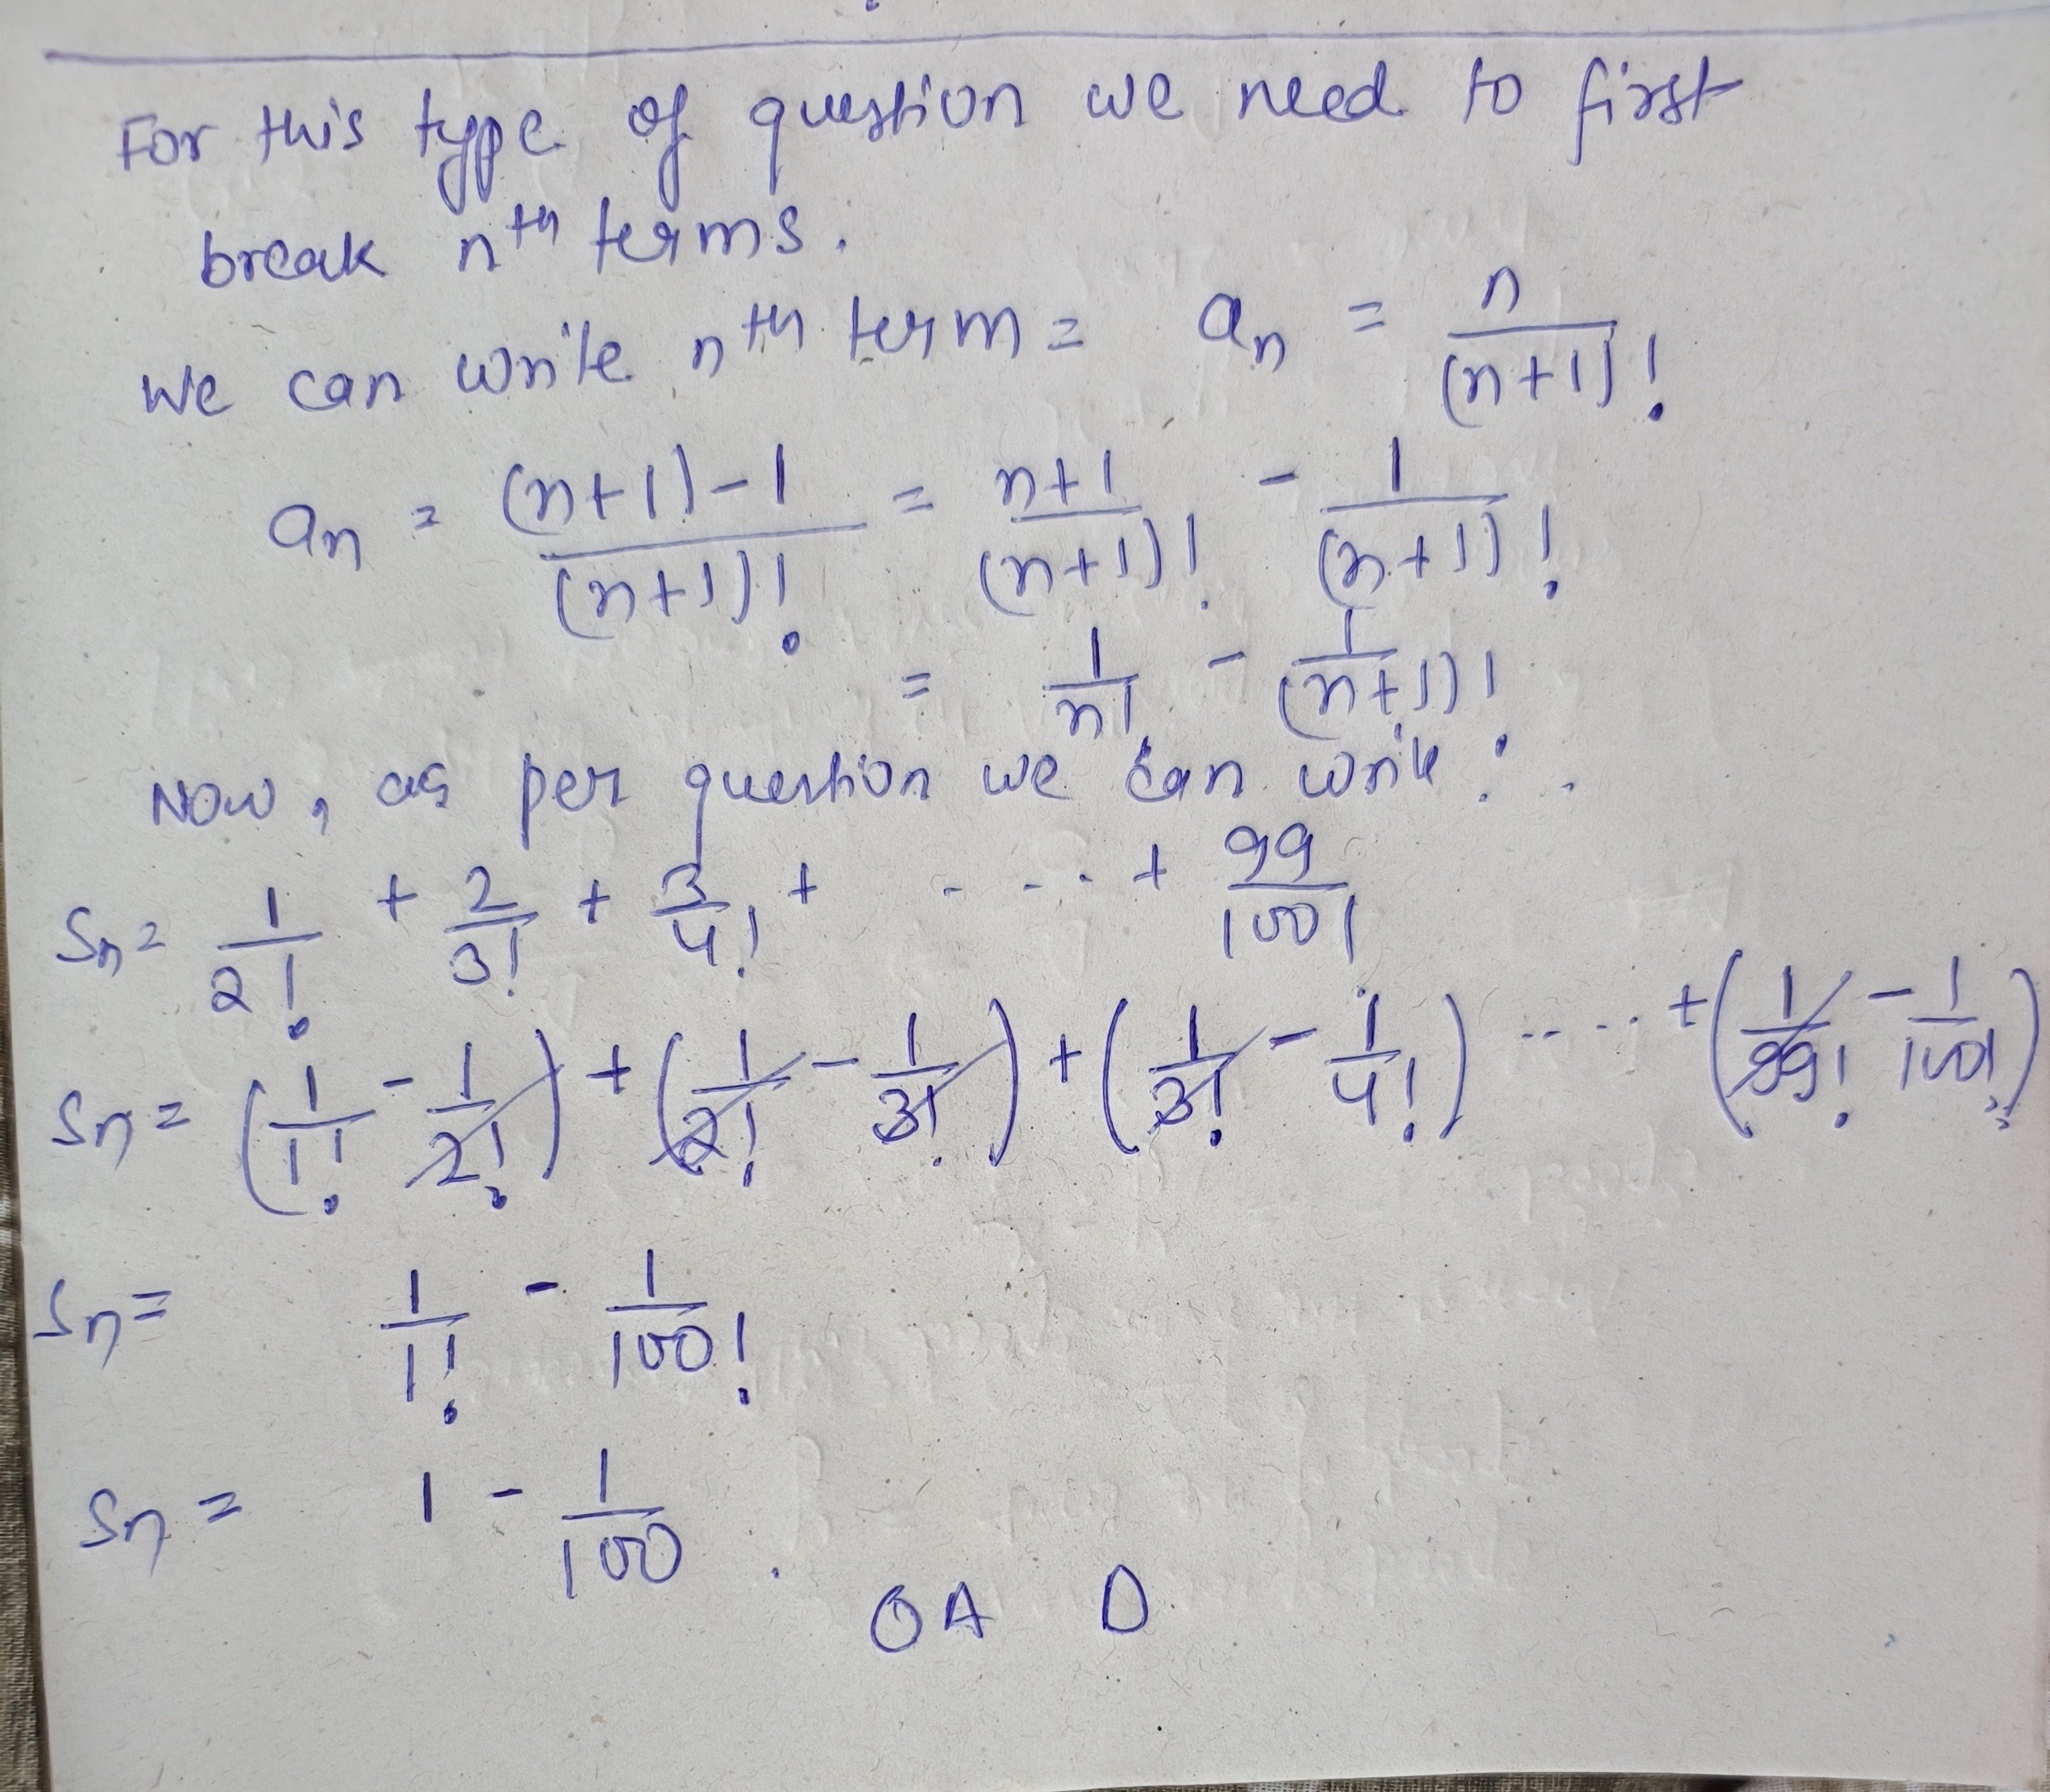 For this type of question we need to first
break nth terms.
We can write nth term = an = n/(n+1)!
an = (n+1)-1/(n+1)! = n+1/(n+1)! - 1/(n+1)!
= 1/n! - 1/(n+1)!
Now, as per question we can write! .
Sn = 1/2! + 2/3! + 3/4! + - - - . + 99/100!
Sn = (1/1! - 1/2!) + (1/2! - 1/3!) + (1/3! - 1/4!) ..... + (1/99! - 1/100!)
Sn = 1/1! - 1/100!
Sn = 1 - 1/100 .
OA D